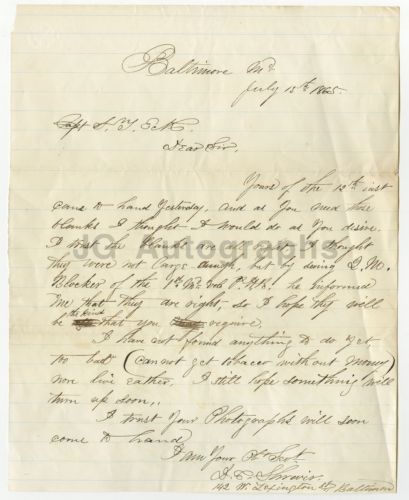 Baltimore Md
July 15th 1865.
Capt S. Y. Eck
Dear Sir,
Yours of the 12th inst
came to hand Yesterday, and as You need the
blanks I thought I would do as You desire.
I trust the blanks are I thought
they were not large enough, but by seeing Q.M.
Blocker of the 1st Md P.H.B. he informed
me that they are right, so I hope they will
be the kind that you require.
I have not found anything to do yet
too bad (can not get tobacco without money)
nor live either. I still hope something will
turn up soon,.
I trust Your Photographs will soon
come to hand
I am Your Obt Servt
142 W. Lexington St Baltimore
JG Autographs